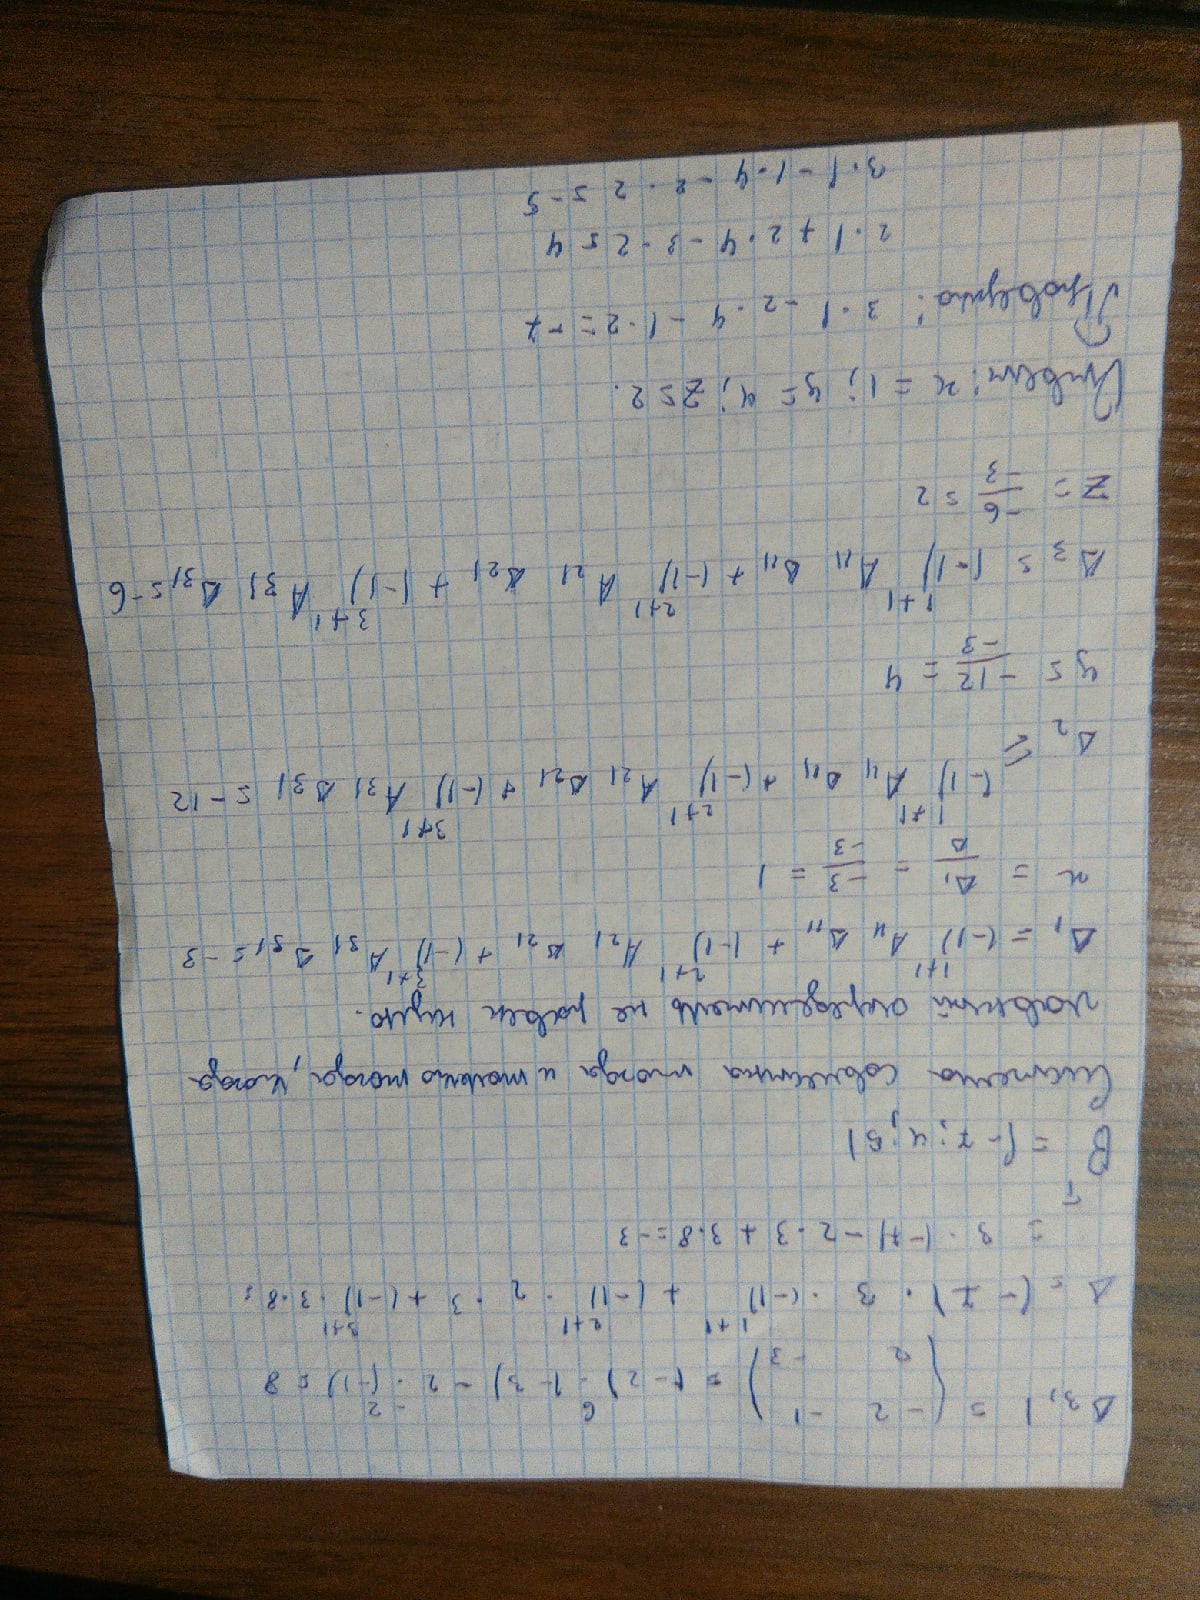 Δ3,1 = (-2 -1
2 -3) = (-2) · (-3) - 2 · (-1) = 8
6 -2
Δ = (-7) · 3 · (-1)^1+1 + (-1)^2+1 · 2 · 3 + (-1)^3+1 · 3 · 8 =
= 3 · (-7) - 2 · 3 + 3 · 8 = -3
B^T = (-7; 4; 5)
Система совместна тогда и только тогда, когда
главный определитель не равен нулю.
Δ1 = (-1)^1+1 A11 Δ11 + (-1)^2+1 A21 Δ21 + (-1)^3+1 A31 Δ31 = -3
x = Δ1/Δ = -3/-3 = 1
Δ2 = (-1)^1+1 A11 Δ11 + (-1)^2+1 A21 Δ21 + (-1)^3+1 A31 Δ31 = -12
y = -12/-3 = 4
Δ3 = (-1)^1+1 A11 Δ11 + (-1)^2+1 A21 Δ21 + (-1)^3+1 A31 Δ31 = -6
z = -6/-3 = 2
Ответ: x = 1; y = 4; z = 2.
Проверка: 3 · 1 - 2 · 4 - 1 · 2 = -7
2 · 1 + 2 · 4 - 3 · 2 = 4
3 · 1 - 1 · 4 - 2 · 2 = -5